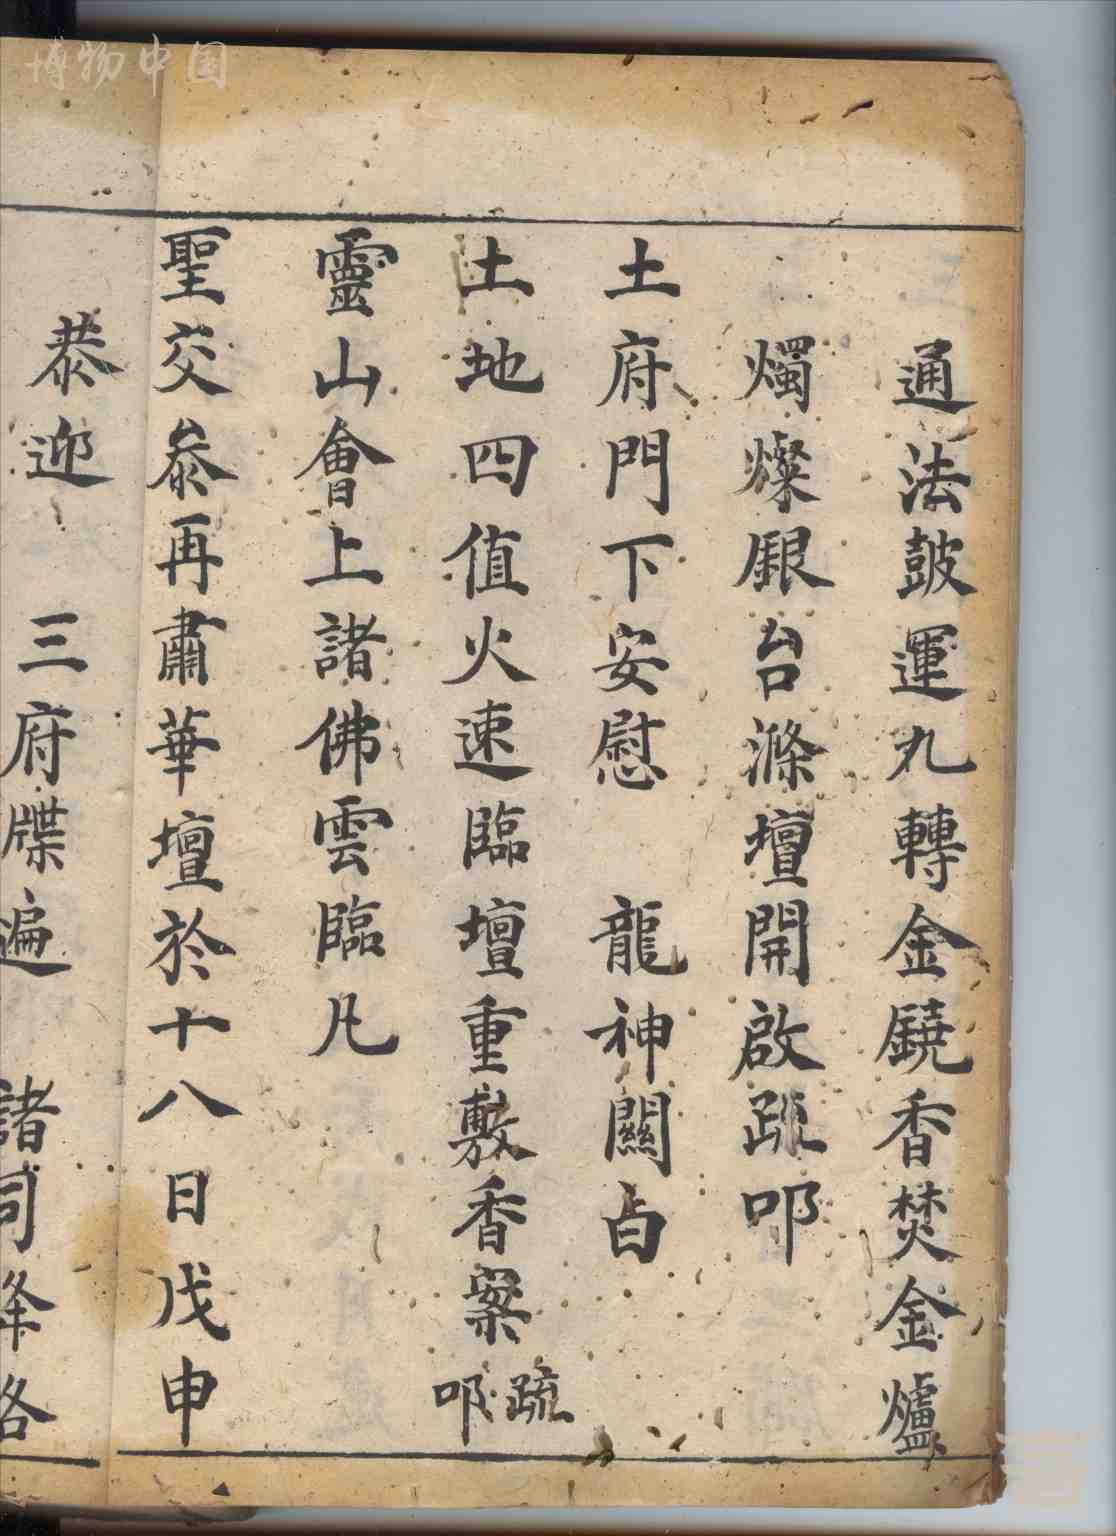 通法皷運九轉金鐃香焚金爐
燭燦銀台滌壇開啟疏叩
土府門下安慰　龍神關白
土地四值火速臨壇重敷香案疏叩
靈山會上諸佛雲臨凡
聖交叅再肅華壇於十八日戊申
恭迎　三府牒遍　諸司降格
博物中国